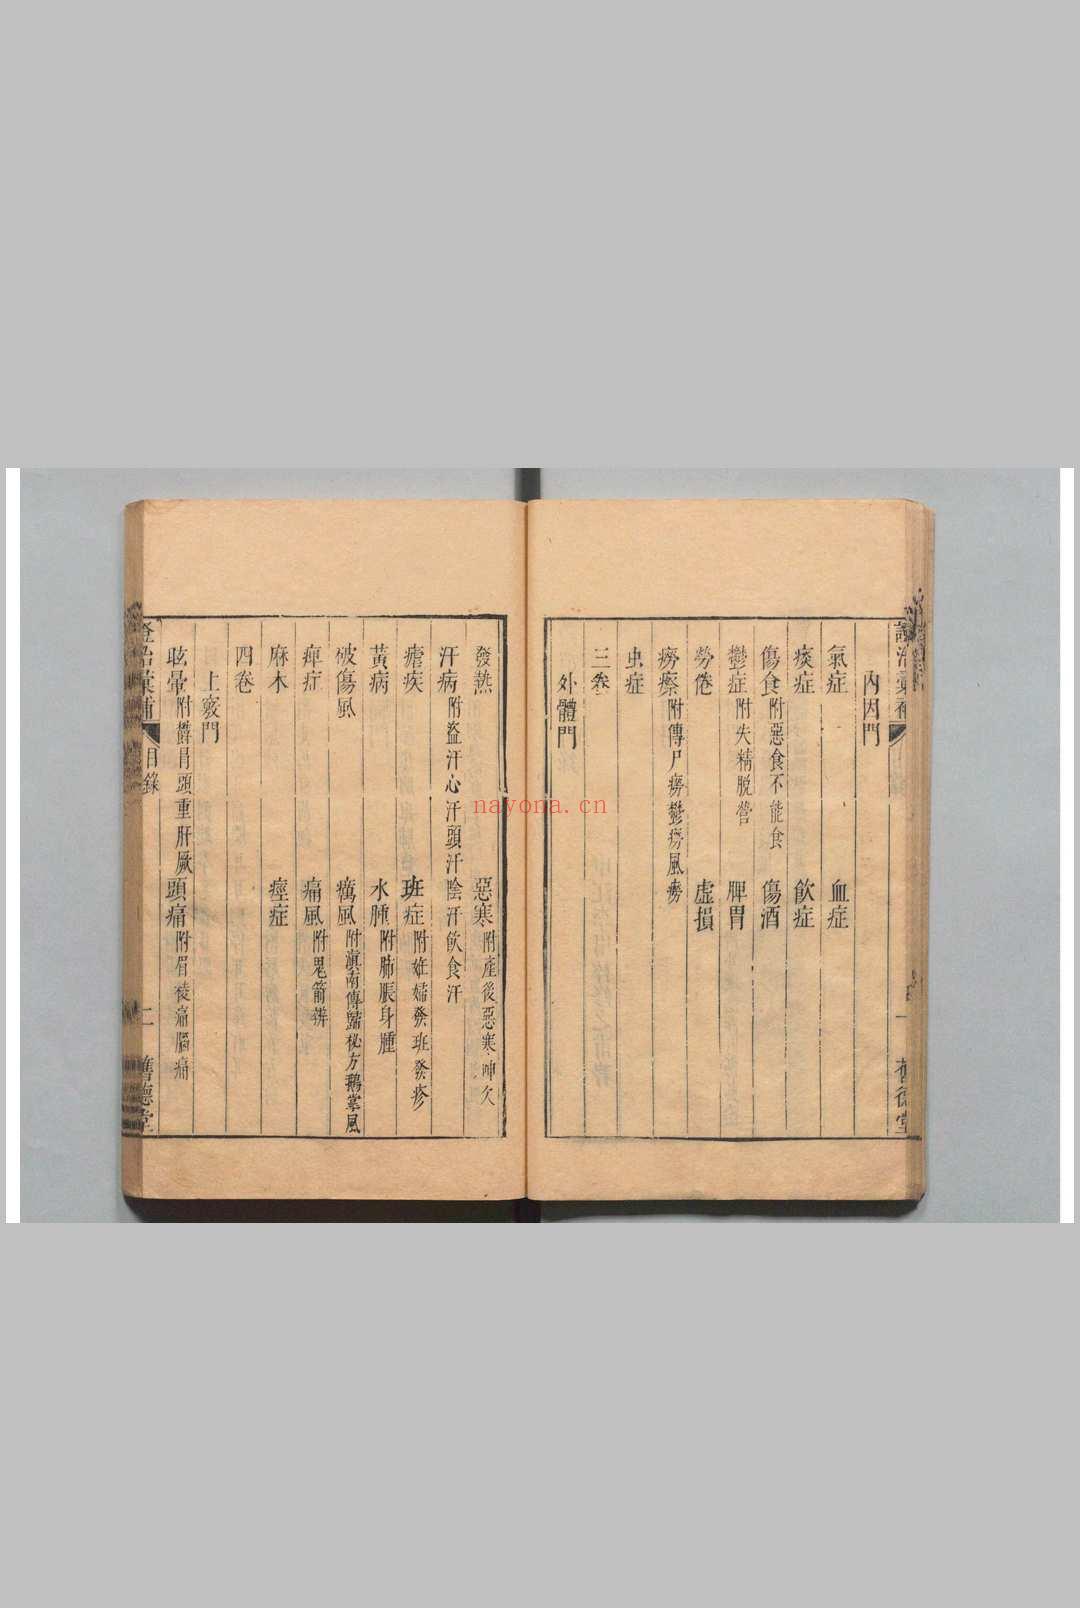 內因門
氣症　血症
痰症　飲症
傷食附惡食不能食　傷酒
鬱症附失精脫營　脾胃
勞倦　虛損
癆瘵附傳尸癆鬱癆風癆
虫症
三卷
外體門
發熱　惡寒附產後惡寒呻欠
汗病附盜汗心汗頭汗陰汗飲食汗
瘧疾　班症附姙孀發班發疹
黃病　水腫附肺脹身腫
破傷風　癘風附滇南傳蠲秘方鵝掌風
痺症　痛風附鬼箭辨
麻木　痙症
四卷
上竅門
眩暈附鬱冒頭重肝厥　頭痛附眉稜痛腦痛
證治彙補　目錄　二　舊德堂
nayona.cn